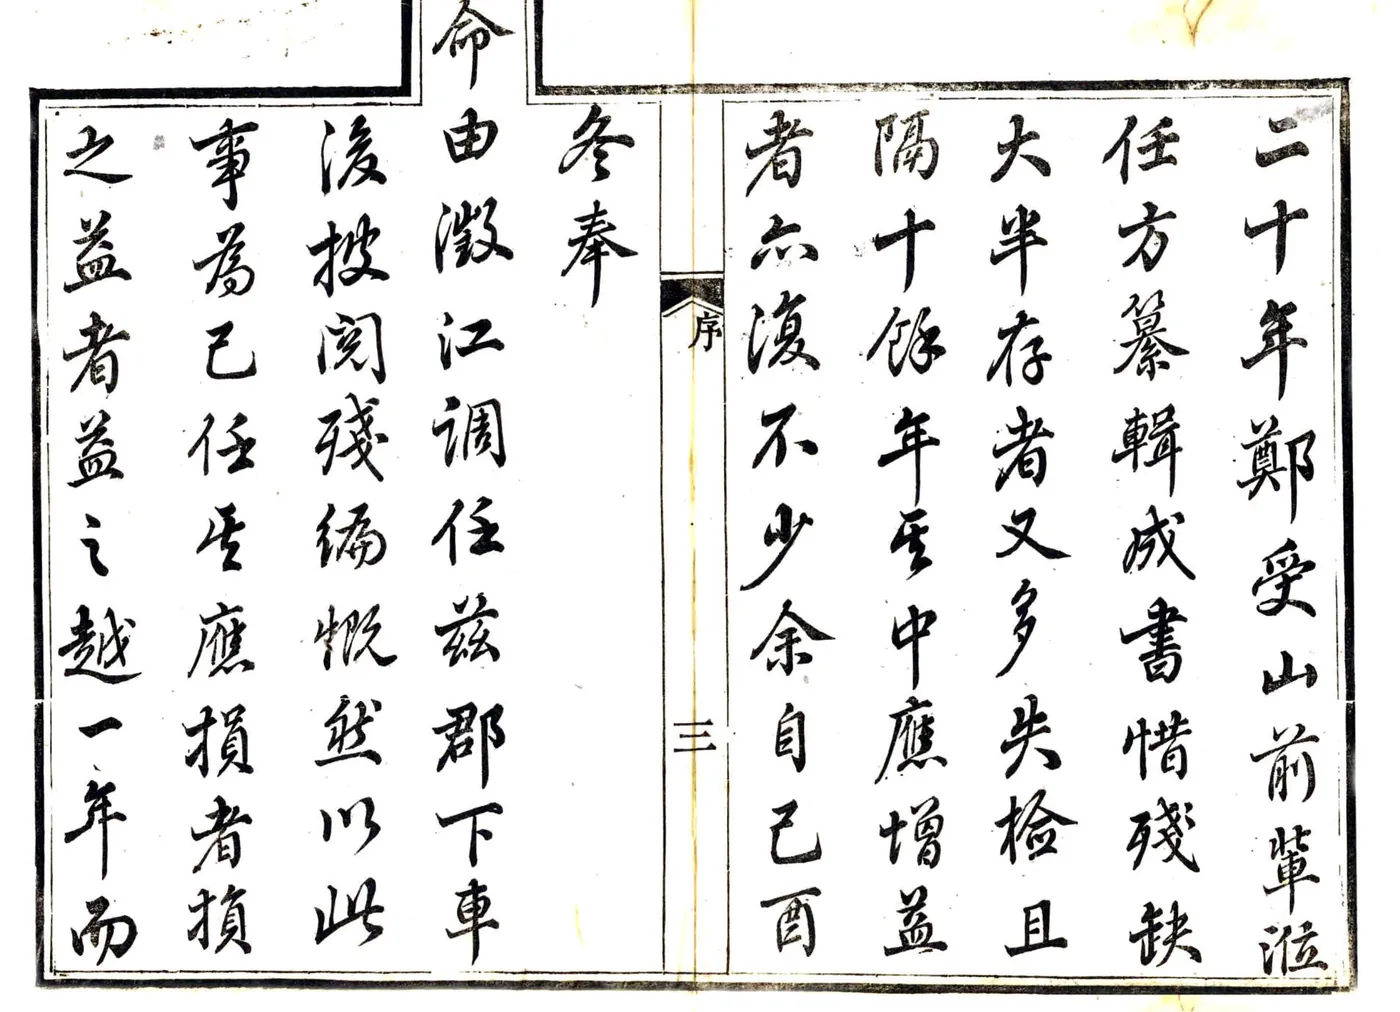 二十年鄭受山前輩涖
任方纂輯成書惜殘缺
大半存者又多失檢且
隔十餘年其中應增益
者亦復不少余自己酉
序
三
冬奉
命由澂江調任茲郡下車
後披閱殘編慨然以此
事為己任其應損者損
之益者益之越一年而